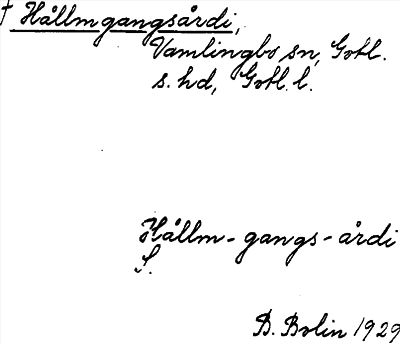 † Hållmgangsårdi,
Vamlingbo sn, Gotl.
s. hd, Gotl. l.
Hållm-gangs-årdi
S.
B. Bolin 1929